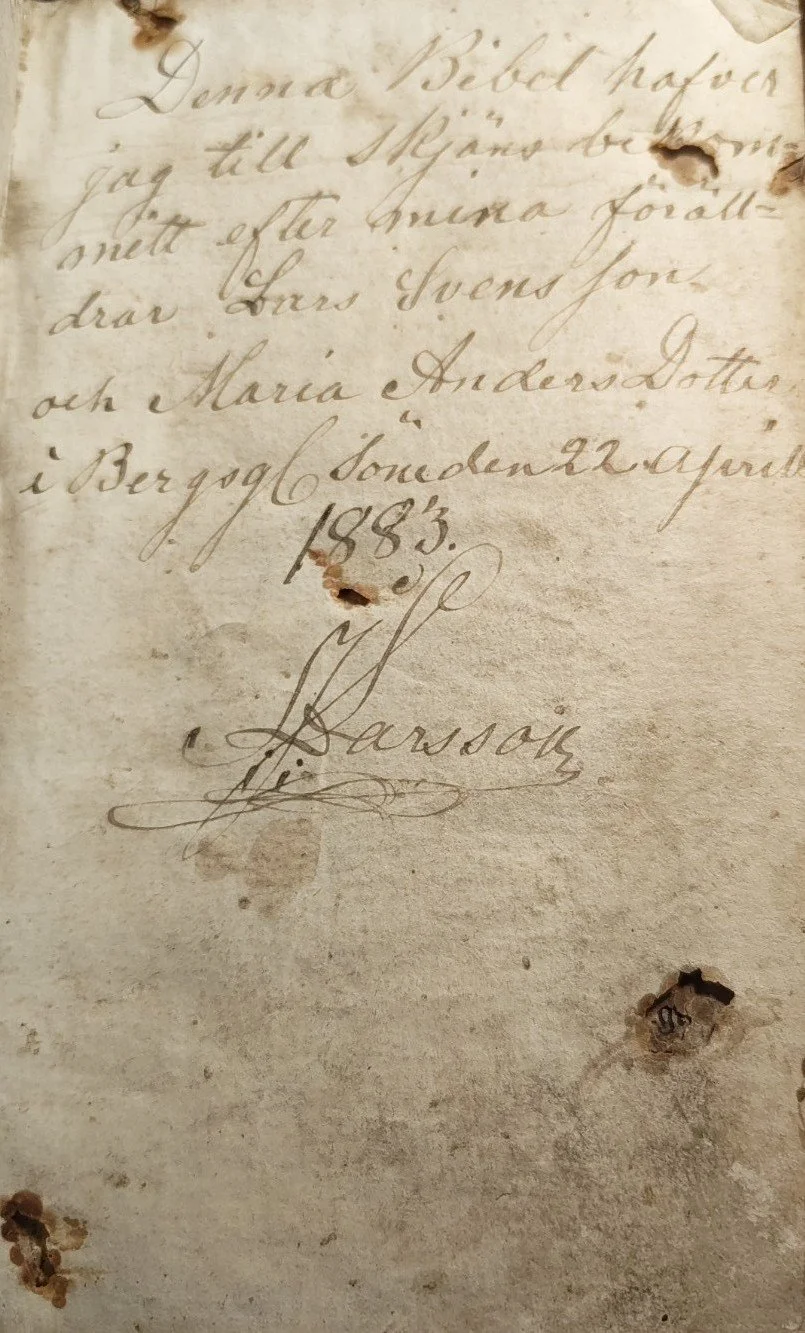 Denna Bibel hafver
jag till skjäns bekom=
mitt efter mina föräll=
drar Lars Svensson
och Maria Anders Dotter
i Bergsg den 22 April
1883.
Larsson